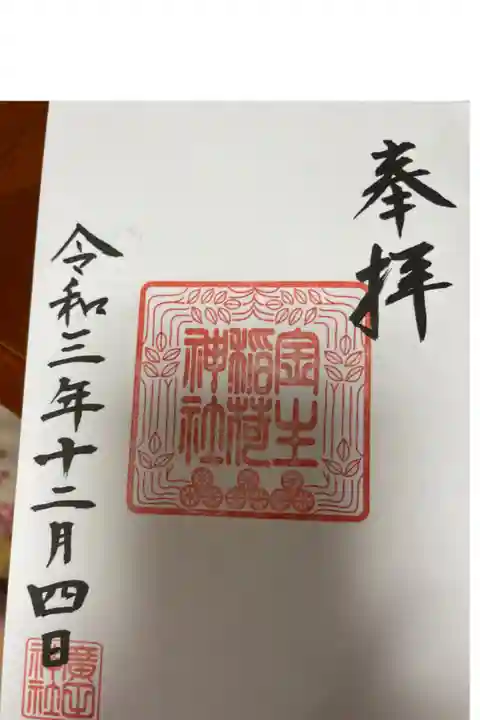 奉拝
宝生
稲荷
神社
令和三年十二月四日
廣田
神社